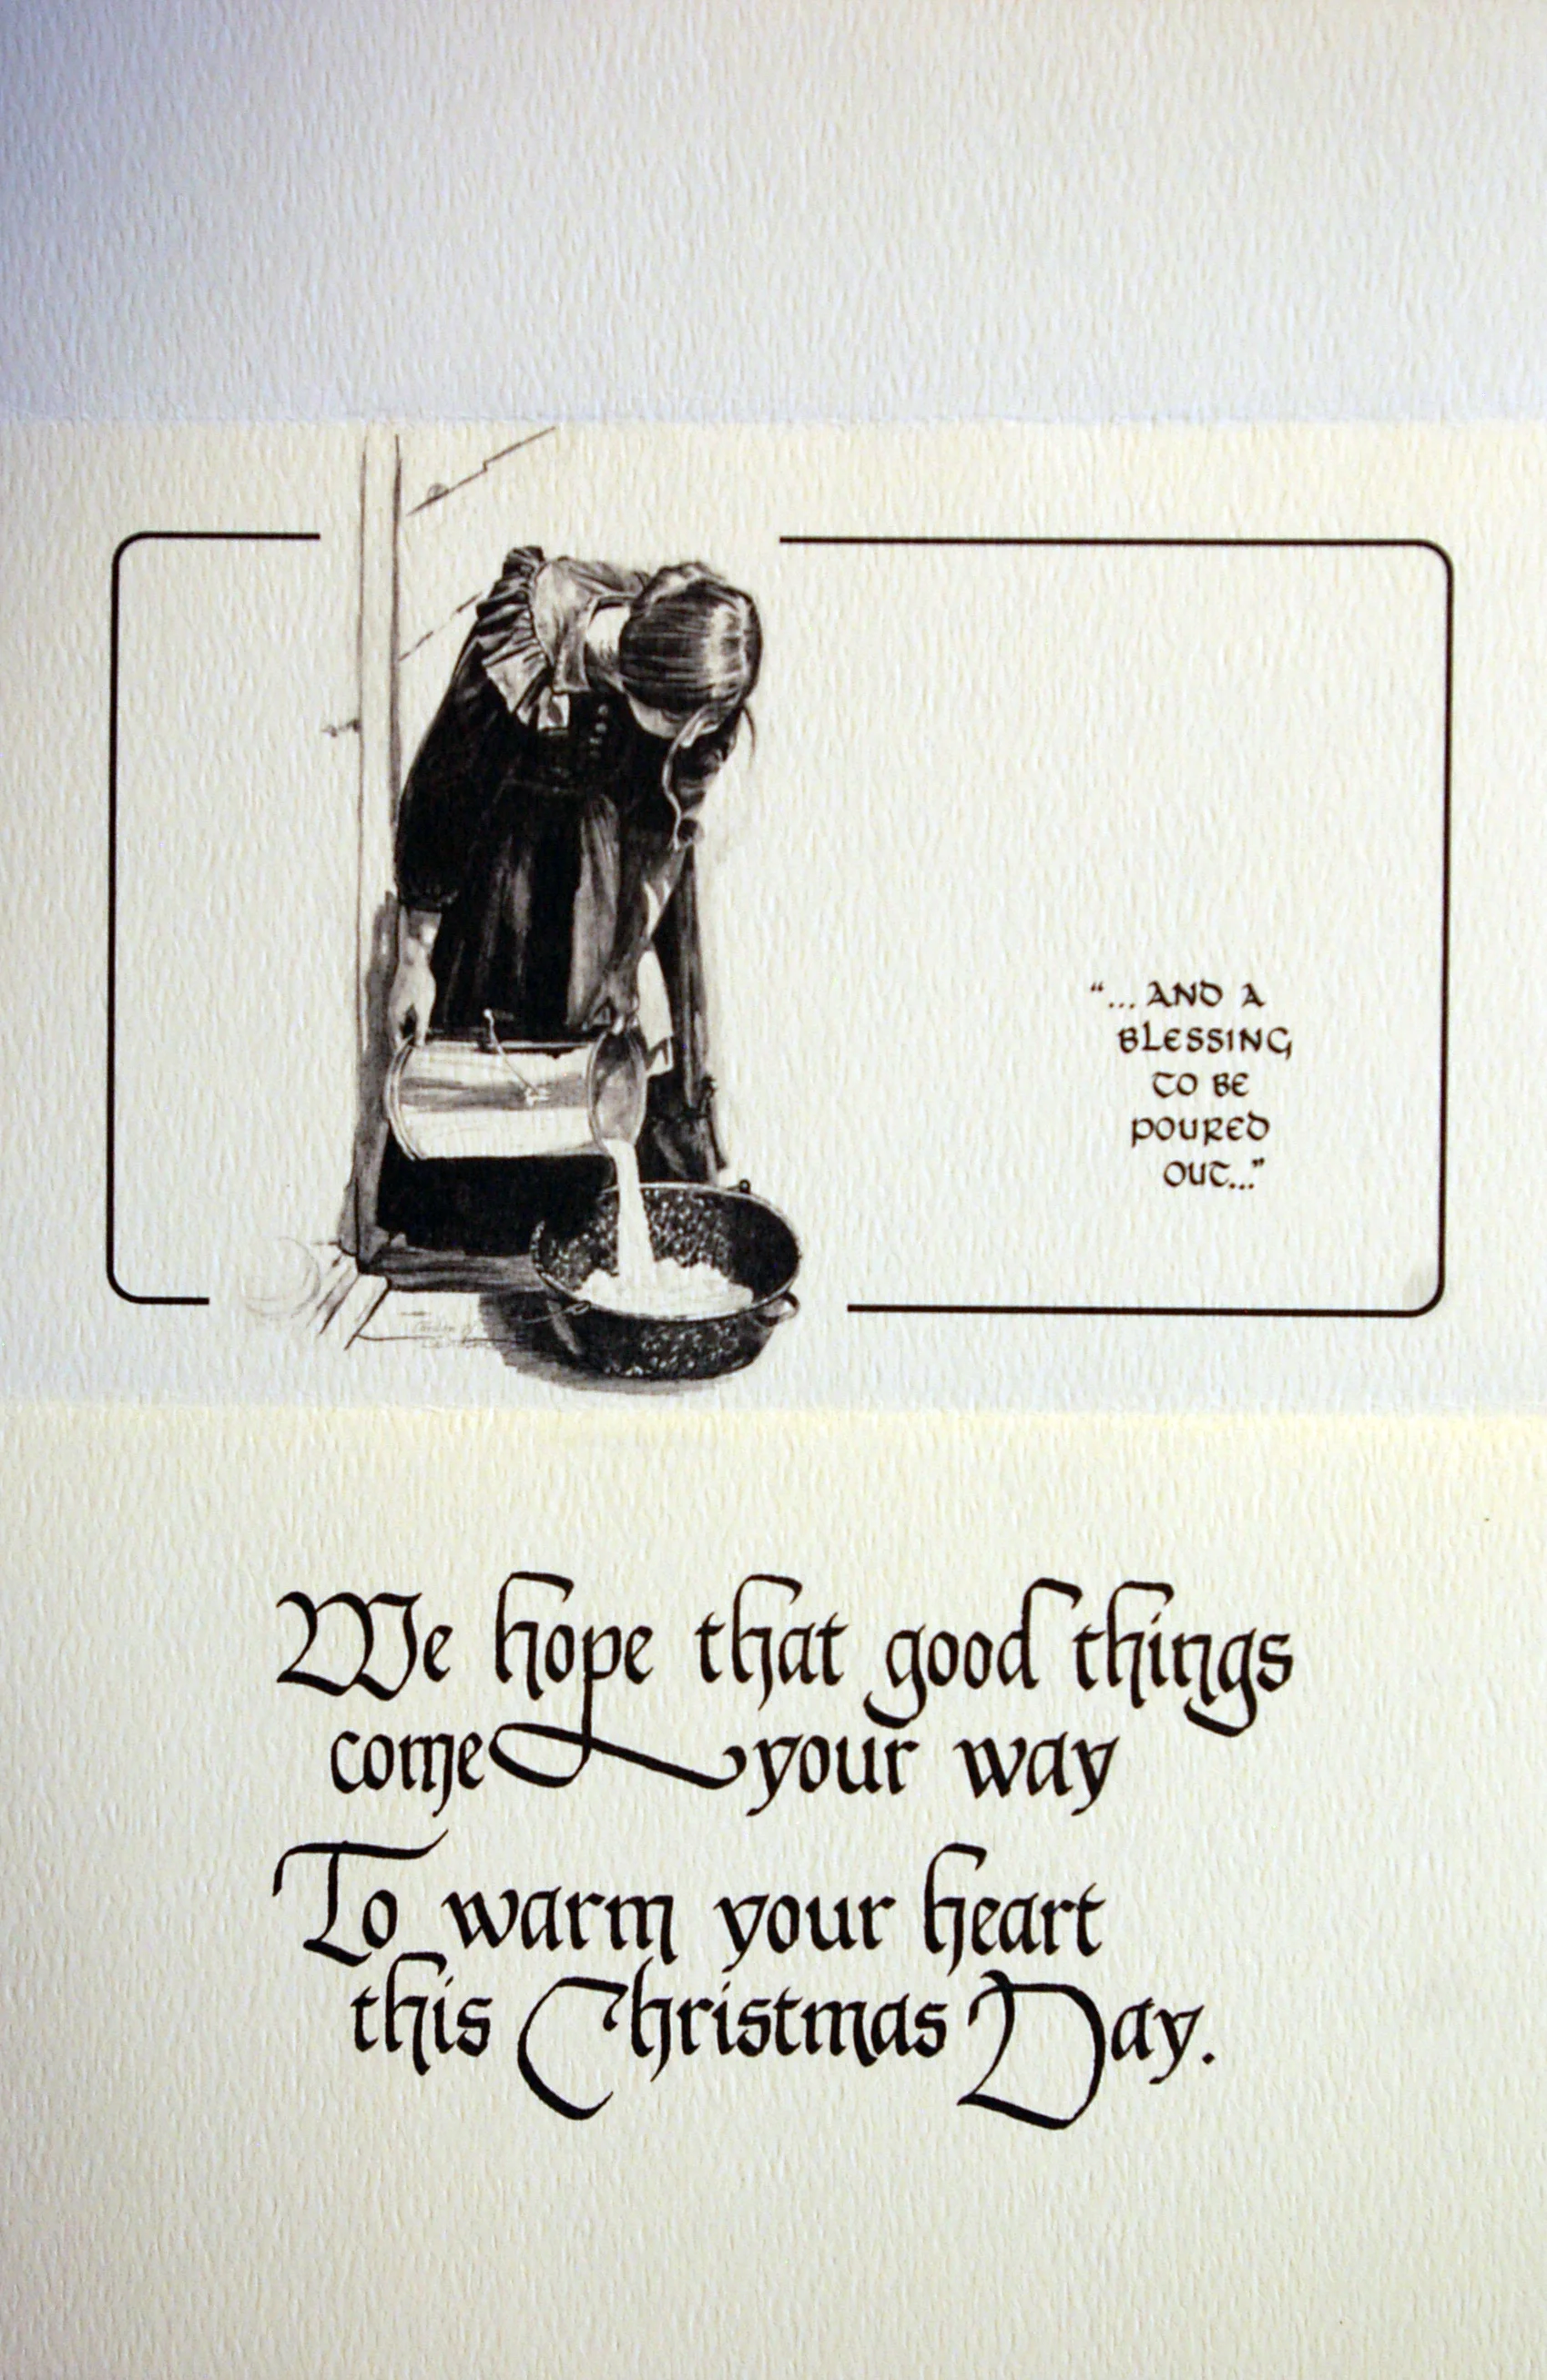 “...AND A
BLESSING
TO BE
POURED
OUT...”
We hope that good things
come your way
To warm your heart
this Christmas Day.